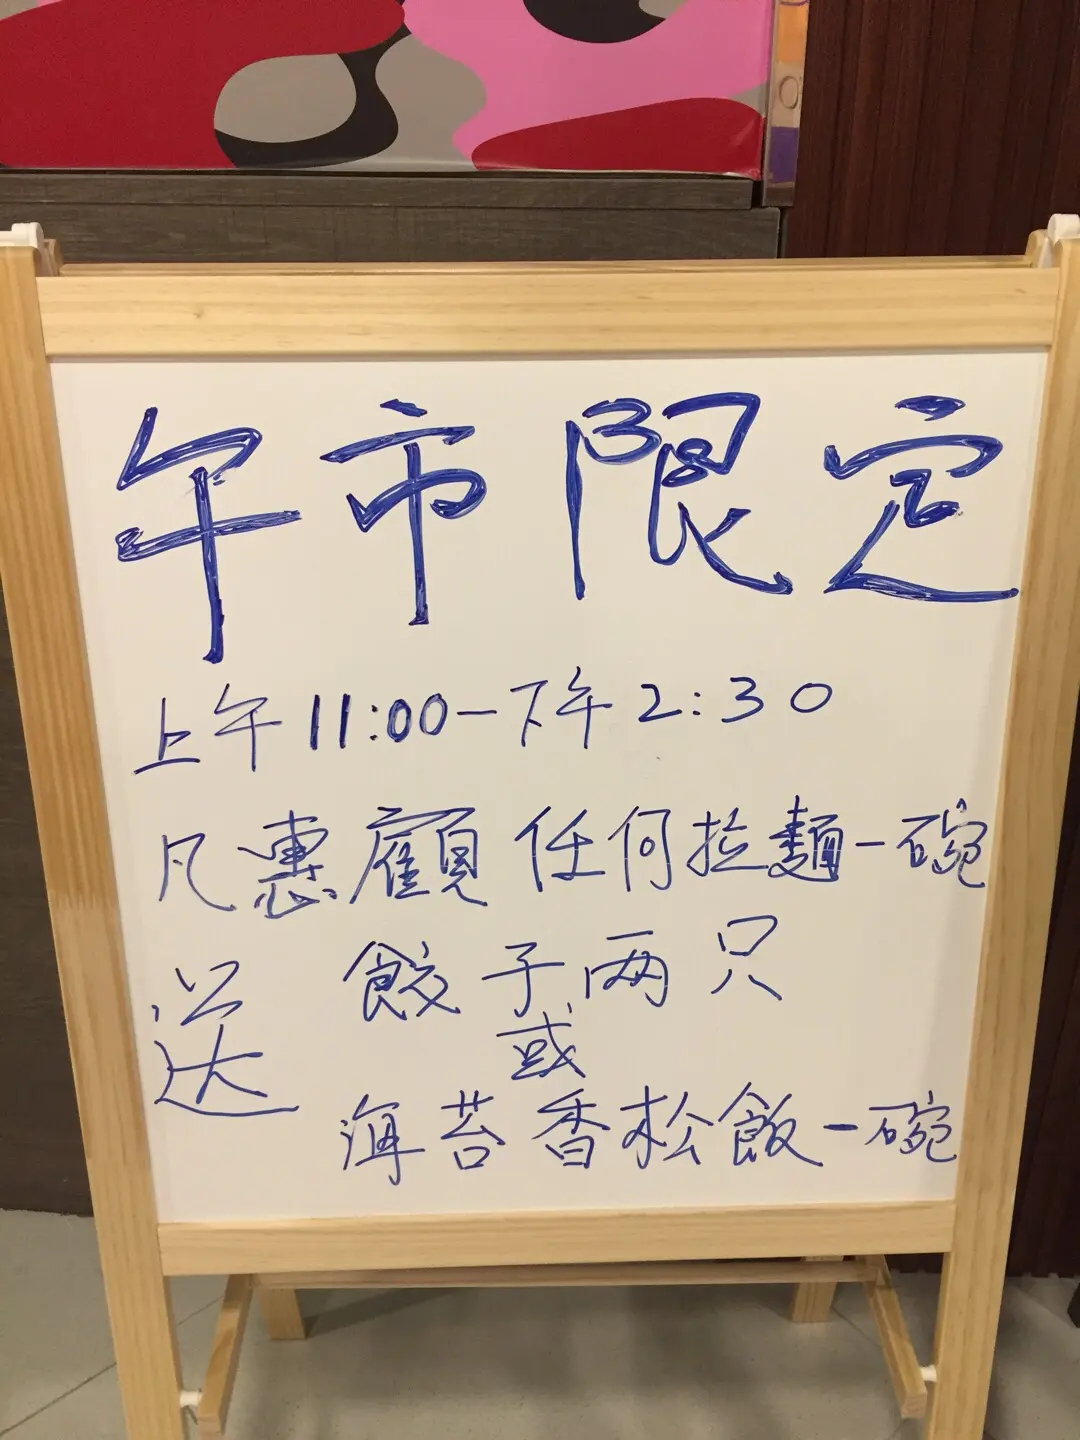 午市限定
上午11:00-下午2:30
凡惠顧任何拉麵一碗
送 餃子兩只
或
海苔香松飯一碗